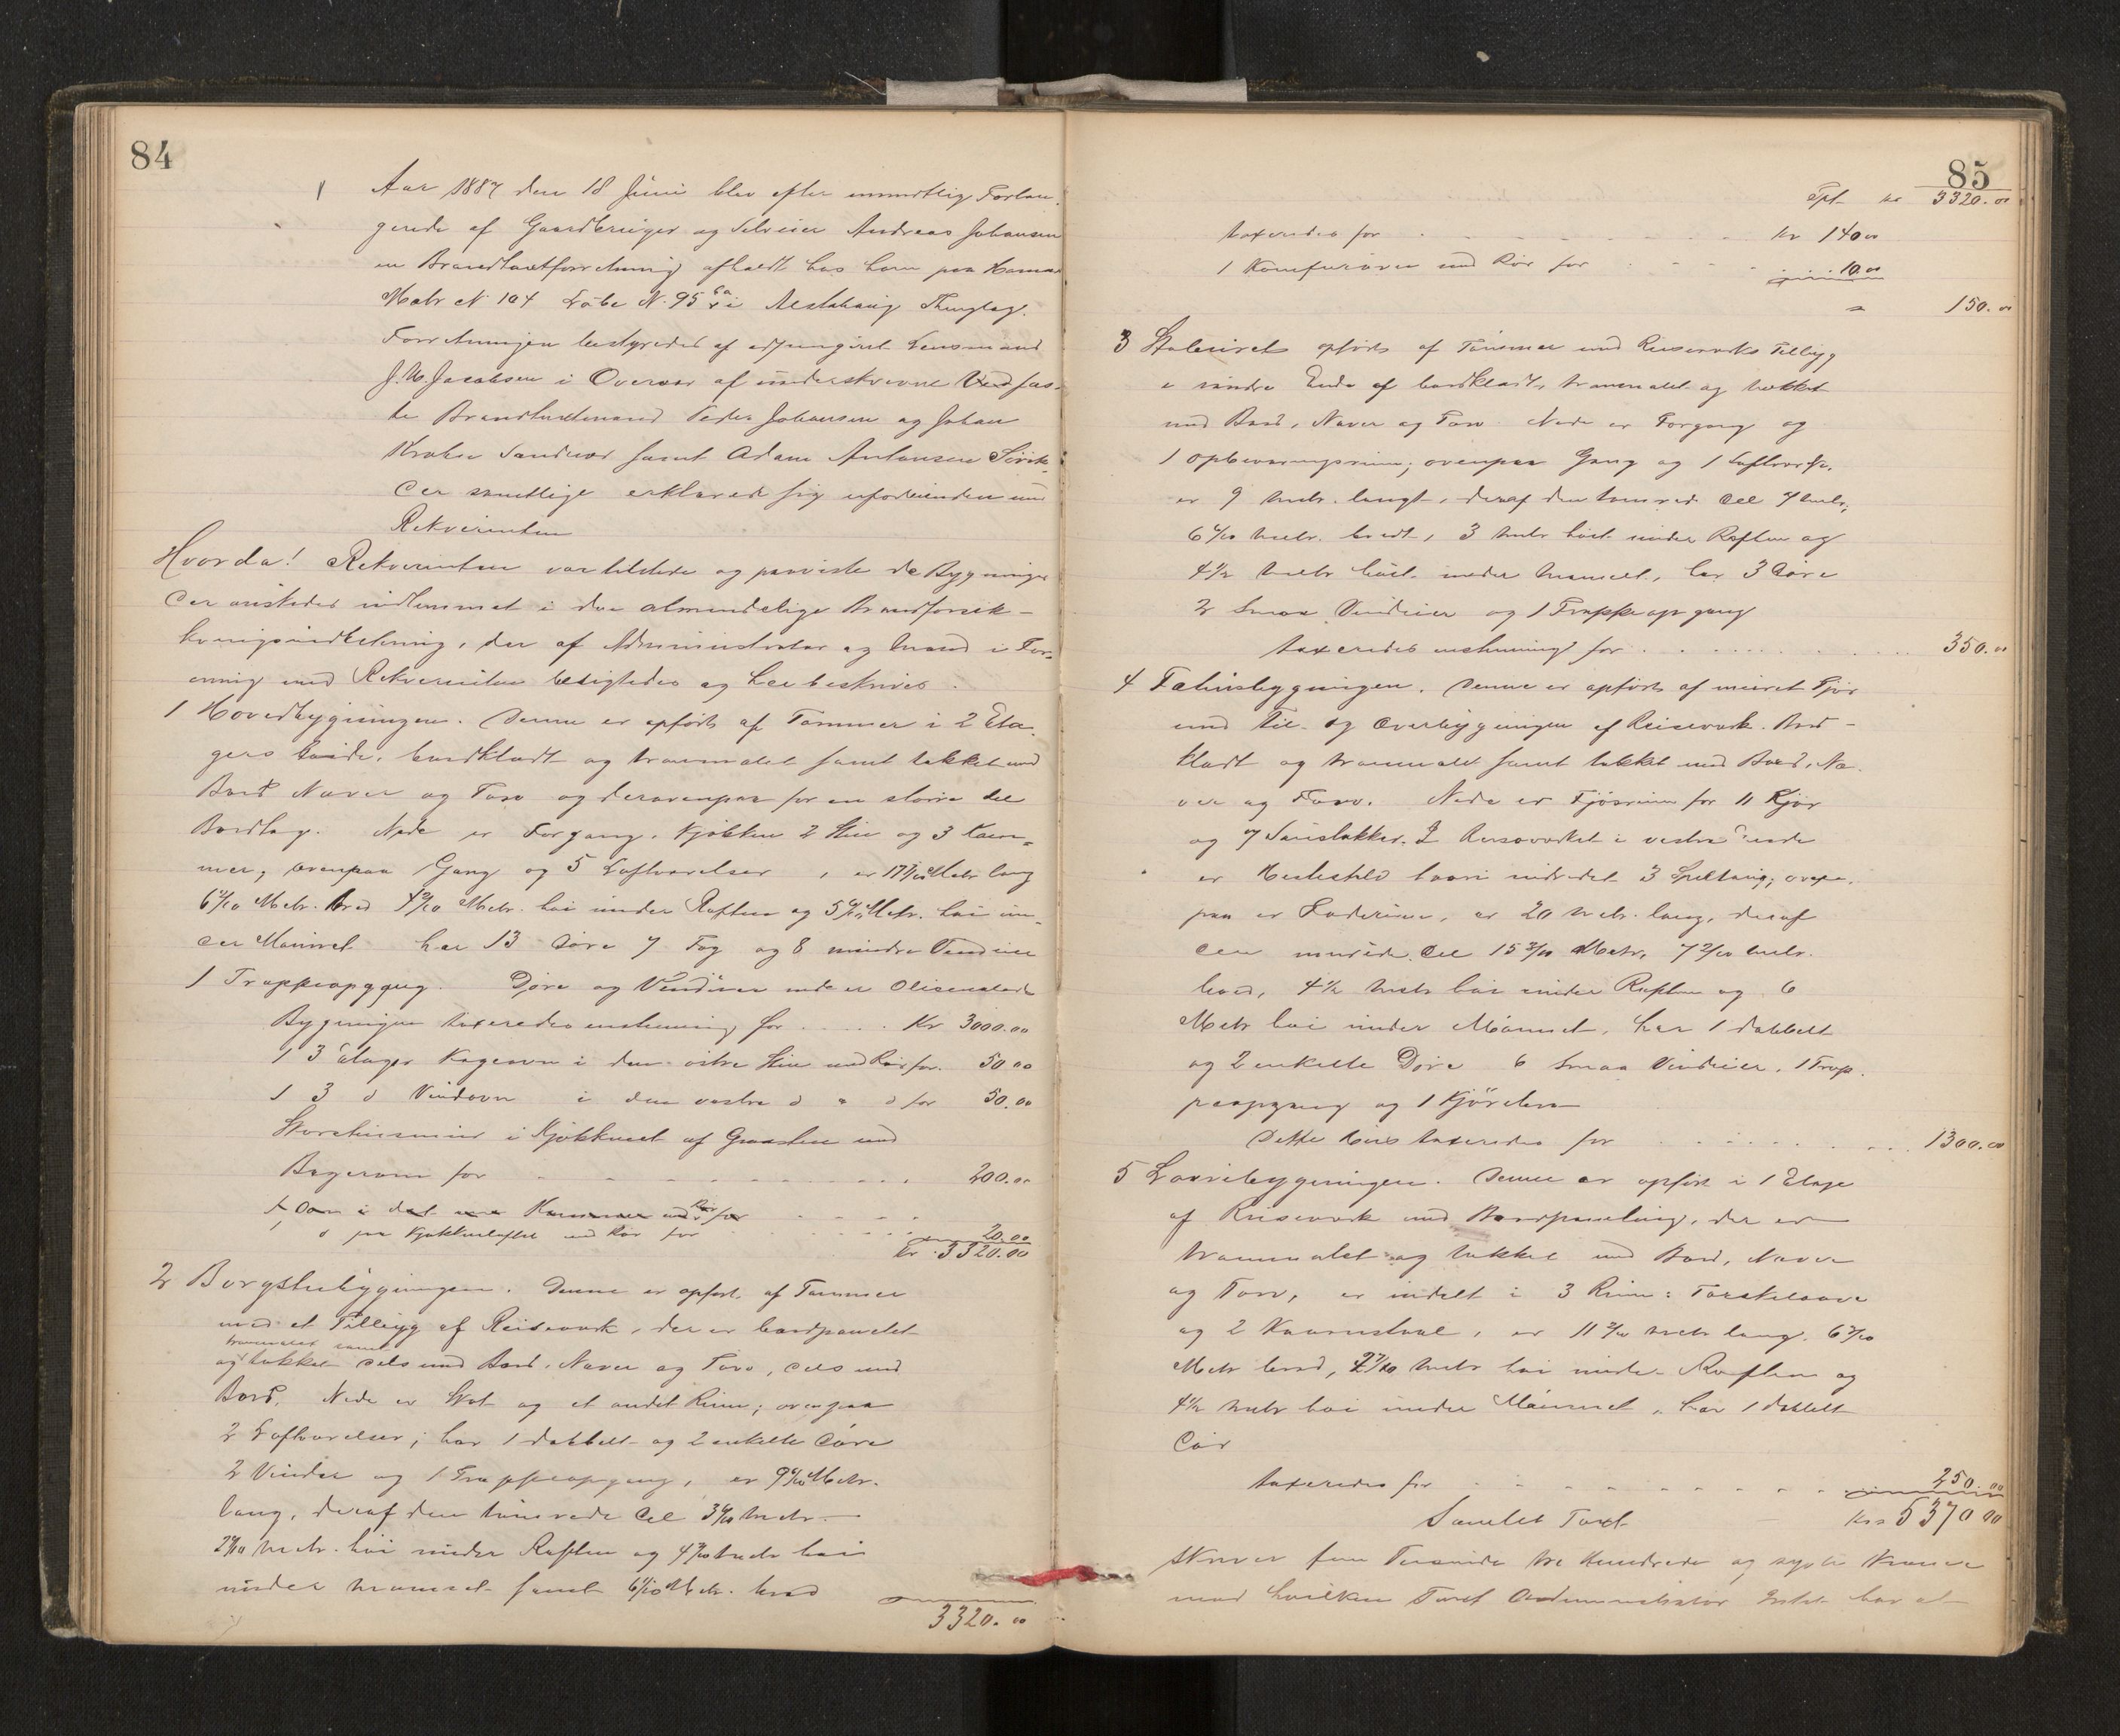 84
Aar 1887 den 18 Juni blev efter mundtlig Forlan-
gende af Gaardbruger og Selveier Andreas Johansen
en Brandtaxtforretning afholdt hos ham paa
Matr N. 104 Løbe N. 95 i Alstahaug Thinglag.
Forretningen bestyredes af adjungeret Lensmand
J. M. Jacobsen i Overvær af underskrevne
te Brandtaxtmænd Peder Johansen og Johan
Sandnes samt Adam Antonsen
Der samtlige erklæred sig uforbunden med
Rekvirenten
Hvorda! Rekvirenten var tilstede og paaviste de Bygninger
der ønskedes indlemmet i den almindelige Brandforsik-
kringsindretning, der af Administrator og Mænd i For-
ening med Rekvirenten besigtedes og her beskrives.
1 Hovedbygningen. Denne er opført af Tømmer i 2 Eta-
gers Høide, bordklædt og tranmalet samt tækket med
Bord Næver og Torv og derovenpaa for en større Del
Bordtag. Nede er Forgang, Kjøkken 2 Stuer og 3 Kam-
mer, ovenpaa Gang og 5 Loftværelser, er Metr lang
Metr. bred Metr. høi under Raften og Metr. høi un-
der Mønnet har 13 Døre 7 Fag og 8 mindre Vinduer
1 Trappeopgang. Døre og Vinduer nede er Oliemalede
Bygningen taxeredes enstemmig for Kr 3000.00
1 3 Etages Kogeovn i den østre Stue med Rør for. 50 00
1 3 d Vindovn i den vestre d " d for 50.00
Skorstensmur i Kjøkkenet af Graasten med
Bagerovn for 200.00
1 Ovn i det ene Kammer med Rør for
1 d paa Kjøkkenloftet med Rør for 20.00
Kr. 3320.00
2 Borgstubygningen. Denne er opført af Tømmer
med et Tilbyg af Reisværk, der er bordpanelet
tranmalet samt
og tækket dels med Bord, Næver og Torv, dels med
Bord. Nede er Stue og et andet Rum; ovenpaa
2 Loftværelser; har 1 dobbelt og 2 enkelte Døre
2 Vinduer og 1 Trappeopgang, er 9 6/10 Metr.
lang, deraf den tømrede Del Metr.
Metr. høi under Raften og Metr høi
under Mønnet samt Metr. bred
3320.00
85
Tpt kr 3320.00
taxeredes for Kr 140 00
1 Komfurovn med Rør for 10.00
" 150.00
3 Staburet opført af Tømmer med Reisværks Tilbyg
i søndre Ende af bordklædt, tranmalet og tækket
med Bord, Næver og Torv. Nede er Forgang og
1 Opbevaringsrum; ovenpaa Gang og 1 Loftværelse.
er 9 Metr. langt, deraf den tømrede Del 7 Metr.,
6 6/10 Metr. bredt, 3 Metr høit under Raften og
4 1/2 Metr høit under Mønnet, har 3 Døre
2 smaa Vinduer og 1 Trappeopgang
taxeredes enstemmigt for 350.00
4 Fæhusbygningen. Denne er opført af muret Fjøs
med Til- og Overbygningen af Reisværk. Bord-
klædt og tranmalet samt tækket med Bord, Næ-
ver og Torv. Nede er Fjøsrum for 11 Kjør
og 7 Sauestakker. I Reisværket i vestre Ende
er Hestestald hvori indredet 3 Spiltaug; oven-
paa er Laderum, er 20 Metr. lang, deraf
den murede Del 15 3/10 Metr, 7 2/10 Metr.
bred, 4 1/2 Metr høi under Raften og 6
Metr høi under Mønnet, har 1 dobbelt
og 2 enkelte Døre 6 smaa Vinduer, 1 Trap-
peopgang og 1 Kjørebro
Dette Hus taxeredes for 1300.00
5 Lovebygningen. Denne er opført i 1 Etage
af Reisværk med Bordpaneling, der er
tranmalet og tækket med Bord, Næver
og Torv, er indelt i 3 Rum: Tørskelaave
og 2 Kornstal, er 11 Metr lang. 6
Metr bred, Metr høi under Raften og
4 1/2 Metr høi under Mønnet, har 1 dobbelt
Dør
taxeredes for 250.00
Samlet Taxt Kr 5370 00
Skriver fem Tusinde tre Hundrede og sytti Kroner
med hvilken Taxt Administrator Intet har at